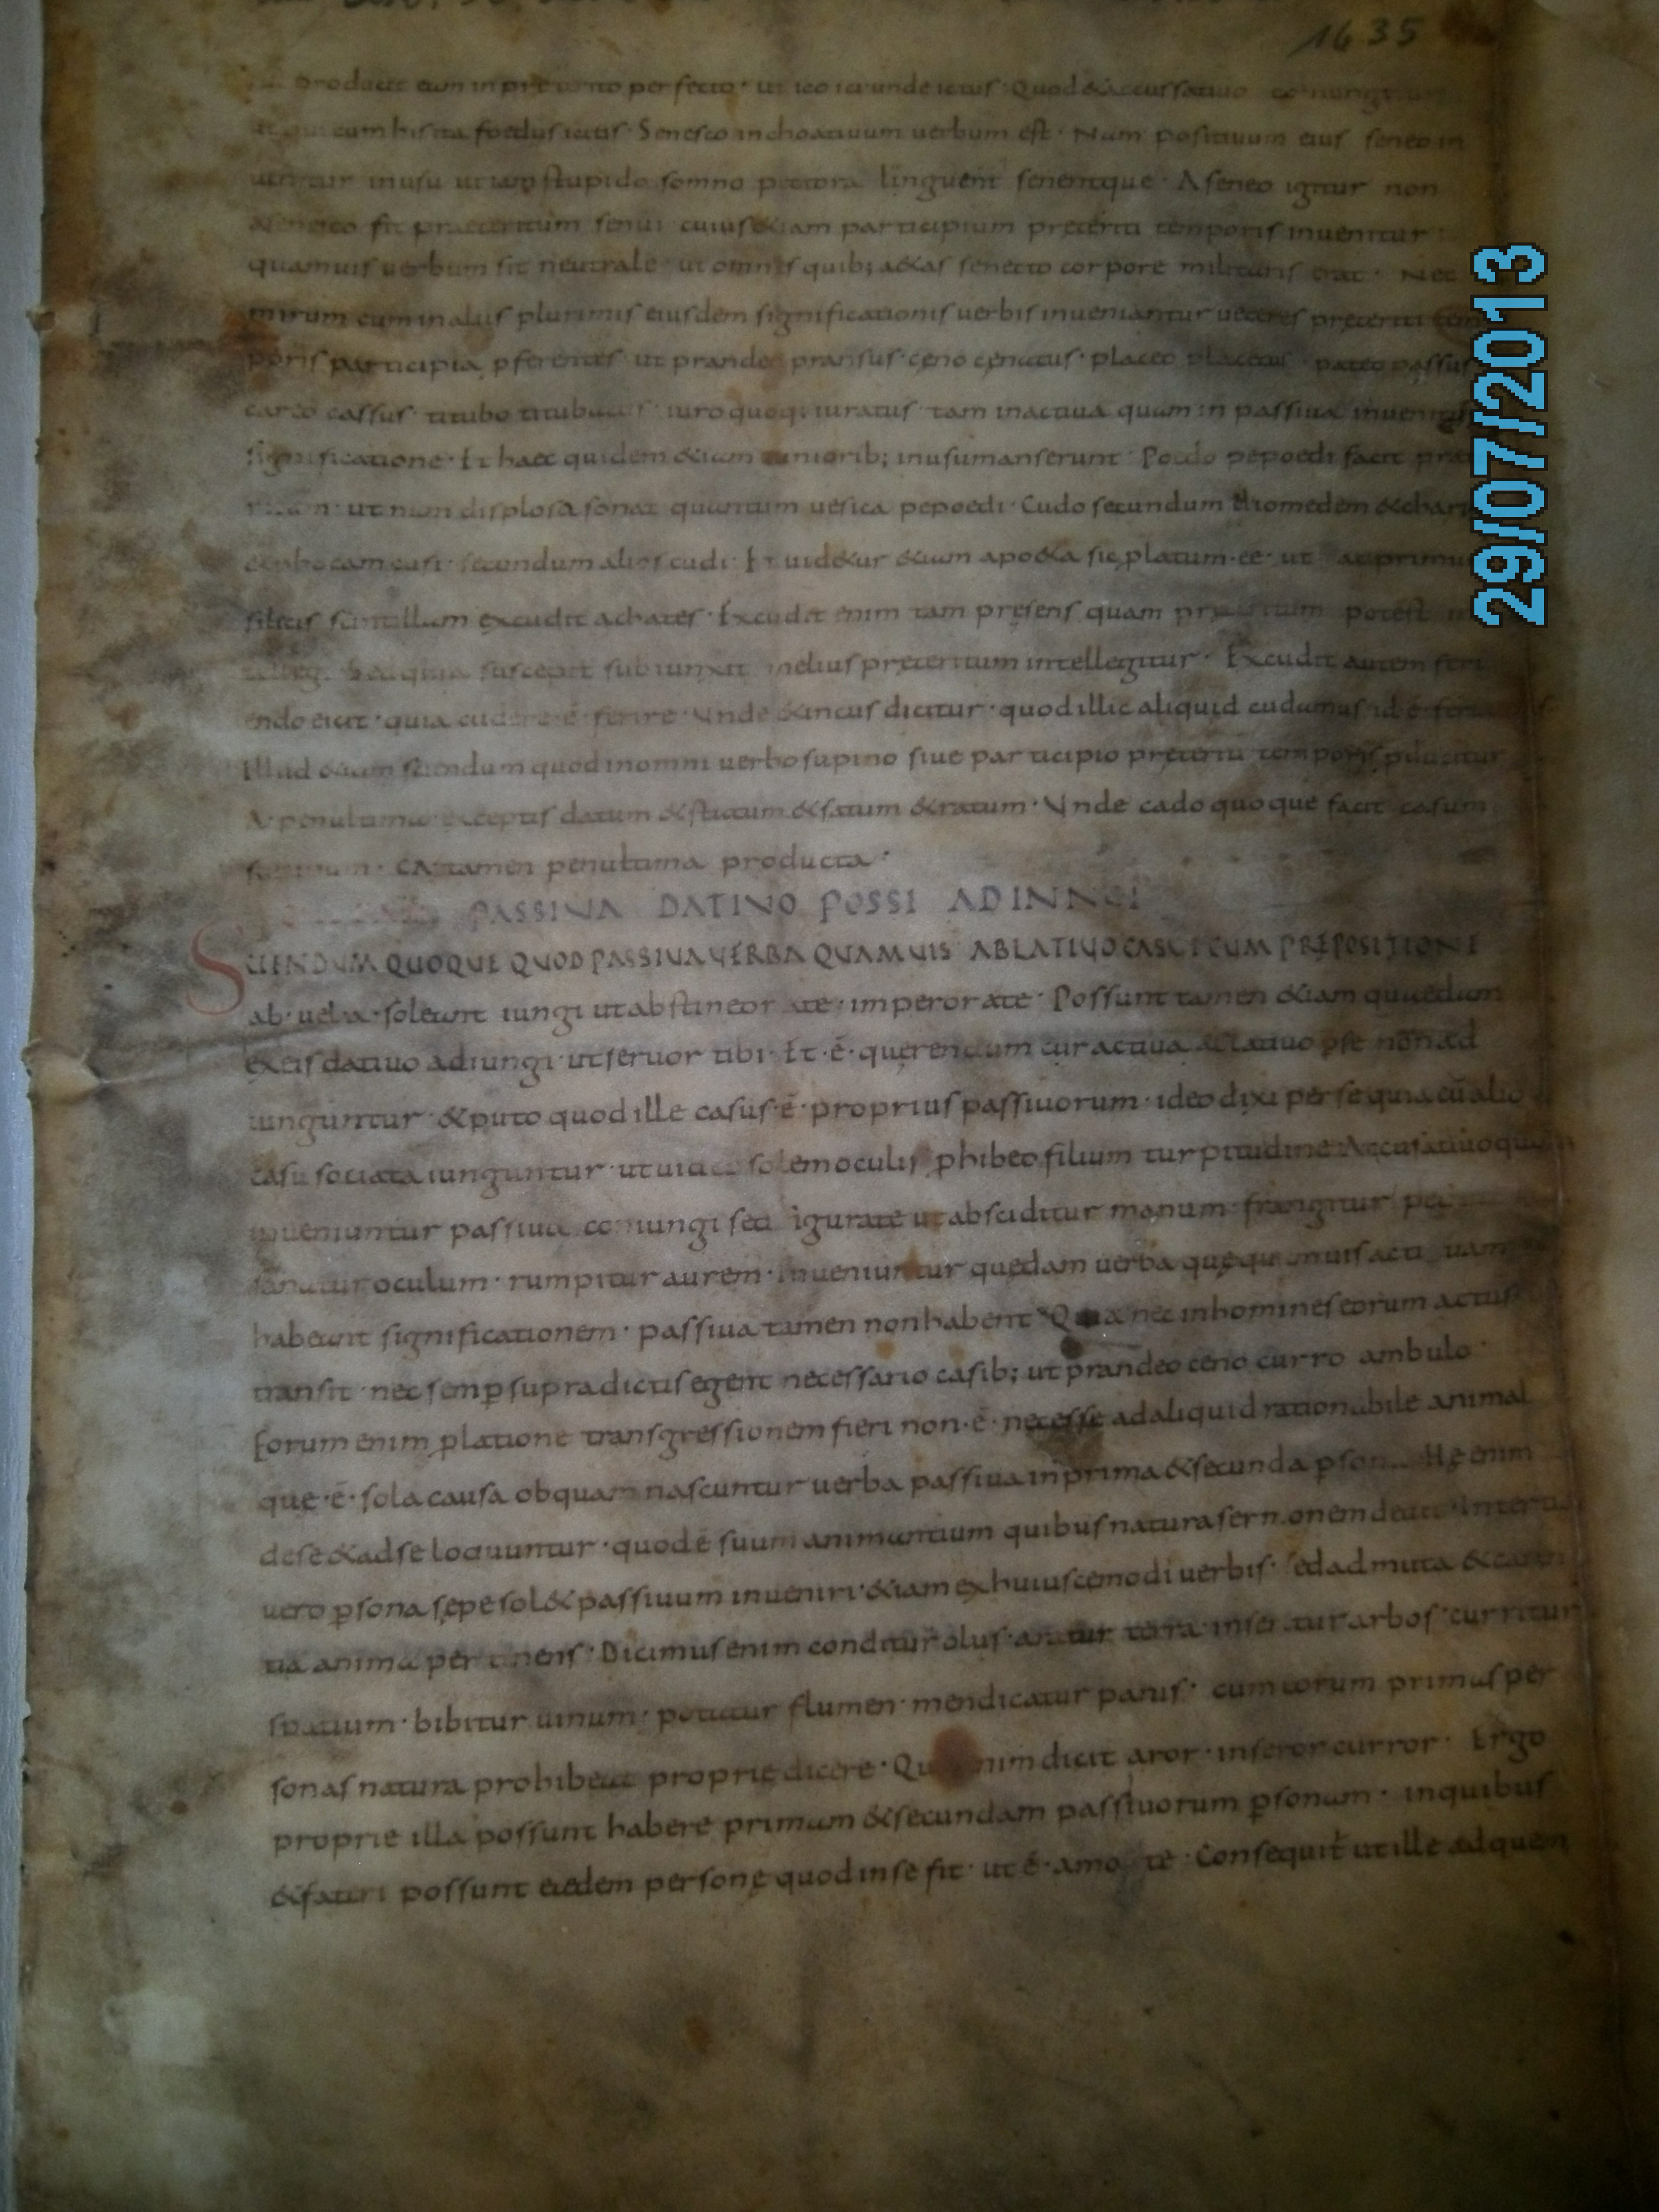 1635
eam in preterito perfecto · ut ico ici unde ictus · Quod & accussatiuo
cum his ita foedus ictus · Senesco inchoatiuum uerbum est · Nam positiuum eius seneo in
inusu ut stupido somno pectora linguent senentque · A seneo igitur non
fit praeteritum senui cuius &iam participium preteriti temporis inuenitur
quamuis uerbum sit neutrale ut omnes quib; a&as senecto corpore militaris erat · Nec
mirum cum in aliis plurimis eiusdem significationis uerbis inueniantur ueteres preteriti tem
poris participia pferentes ut prandeo pransus · ceno cenatus · placeo placitus · pateo passus
careo cassus · titubo titubatus · iuro quoq; iuratus · tam inactiua quam in passiua
significatione · Et haec quidem &iam iuniorib; inusumanserunt · pepoedi facit
ut nam displosa sonat quantum uesica pepoedi · Cudo secundum diomedem &
cusi · secundum alios cudi · Et uid&ur &iam apo&a sic platum · ee · ut primum
silicis scintillam excudit achates · Excudit enim tam presens quam potest
Sed quia suscepit subiunxit melius preteritum intellegitur · Excudit autem feri
endo eicit · quia cudere · ē · ferire · Vnde &incus dicitur · quod illic aliquid cudamus id · ē ·
Illud &iam sciendum quod in omni uerbo supino siue participio preteriti temporis
A penultima exceptis datum &statum &satum &ratum · Vnde cado quoque facit casum
tamen penultima producta ·
PASSIVA DATIVO POSSI ADIVNGI
SCIENDVM QUOQUE QVOD PASSIVA VERBA QVAMVIS ABLATIVO CASVI CVM PREPOSITIONE
ab · uel a · soleant iungi ut abstineor ate · imperor ate · Possunt tamen &iam quaedam
exeis datiuo adiungi · ut seruor tibi · Et · ē · querendum cur actiua ablatiuo pse non ad
iunguntur · &puto quod ille casus · ē · proprius passiuorum · ideo dixi per se quia cū alio
casu sociata iunguntur · ut uideo solem oculis phibeo filium turpitudine · Accusatiuo quoque
inueniuntur passiua coniungi sed figurate ut absciditur manum · frangitur
oculum · rumpitur aurem · Inueniuntur quedam uerba que quamuis actiuam
habeant significationem · passiua tamen non habent · Quia nec in homines eorum actus
transit · nec semp supradictis egent necessario casib; ut prandeo ceno curro ambulo ·
Eorum enim platione transgressionem fieri non · ē · necesse ad aliquid rationabile animal
que · ē · sola causa ob quam nascuntur uerba passiua in prima &secunda psona · He enim
dese &adse locuuntur · quod ē suum animantium quibus natura sermonem dedit ·
uero psona sepe sol& passiuum inueniri · &iam ex huiuscemodi uerbis · sed ad muta &
tia anima pertinens · Dicimus enim conditur olus · aratur terra · inseritur arbos · curritur
spatium · bibitur uinum · potatur flumen · mendicatur panis · cum eorum primas per
sonas natura prohibeat proprie dicere · Quis enim dicit aror · inseror curror · Ergo
proprie illa possunt habere primam &secundam passiuorum psonam · in quibus
&fateri possunt eaedem persone quod in se fit · ut ē · amo te · Consequit ut ille ad quem
29/07/2013